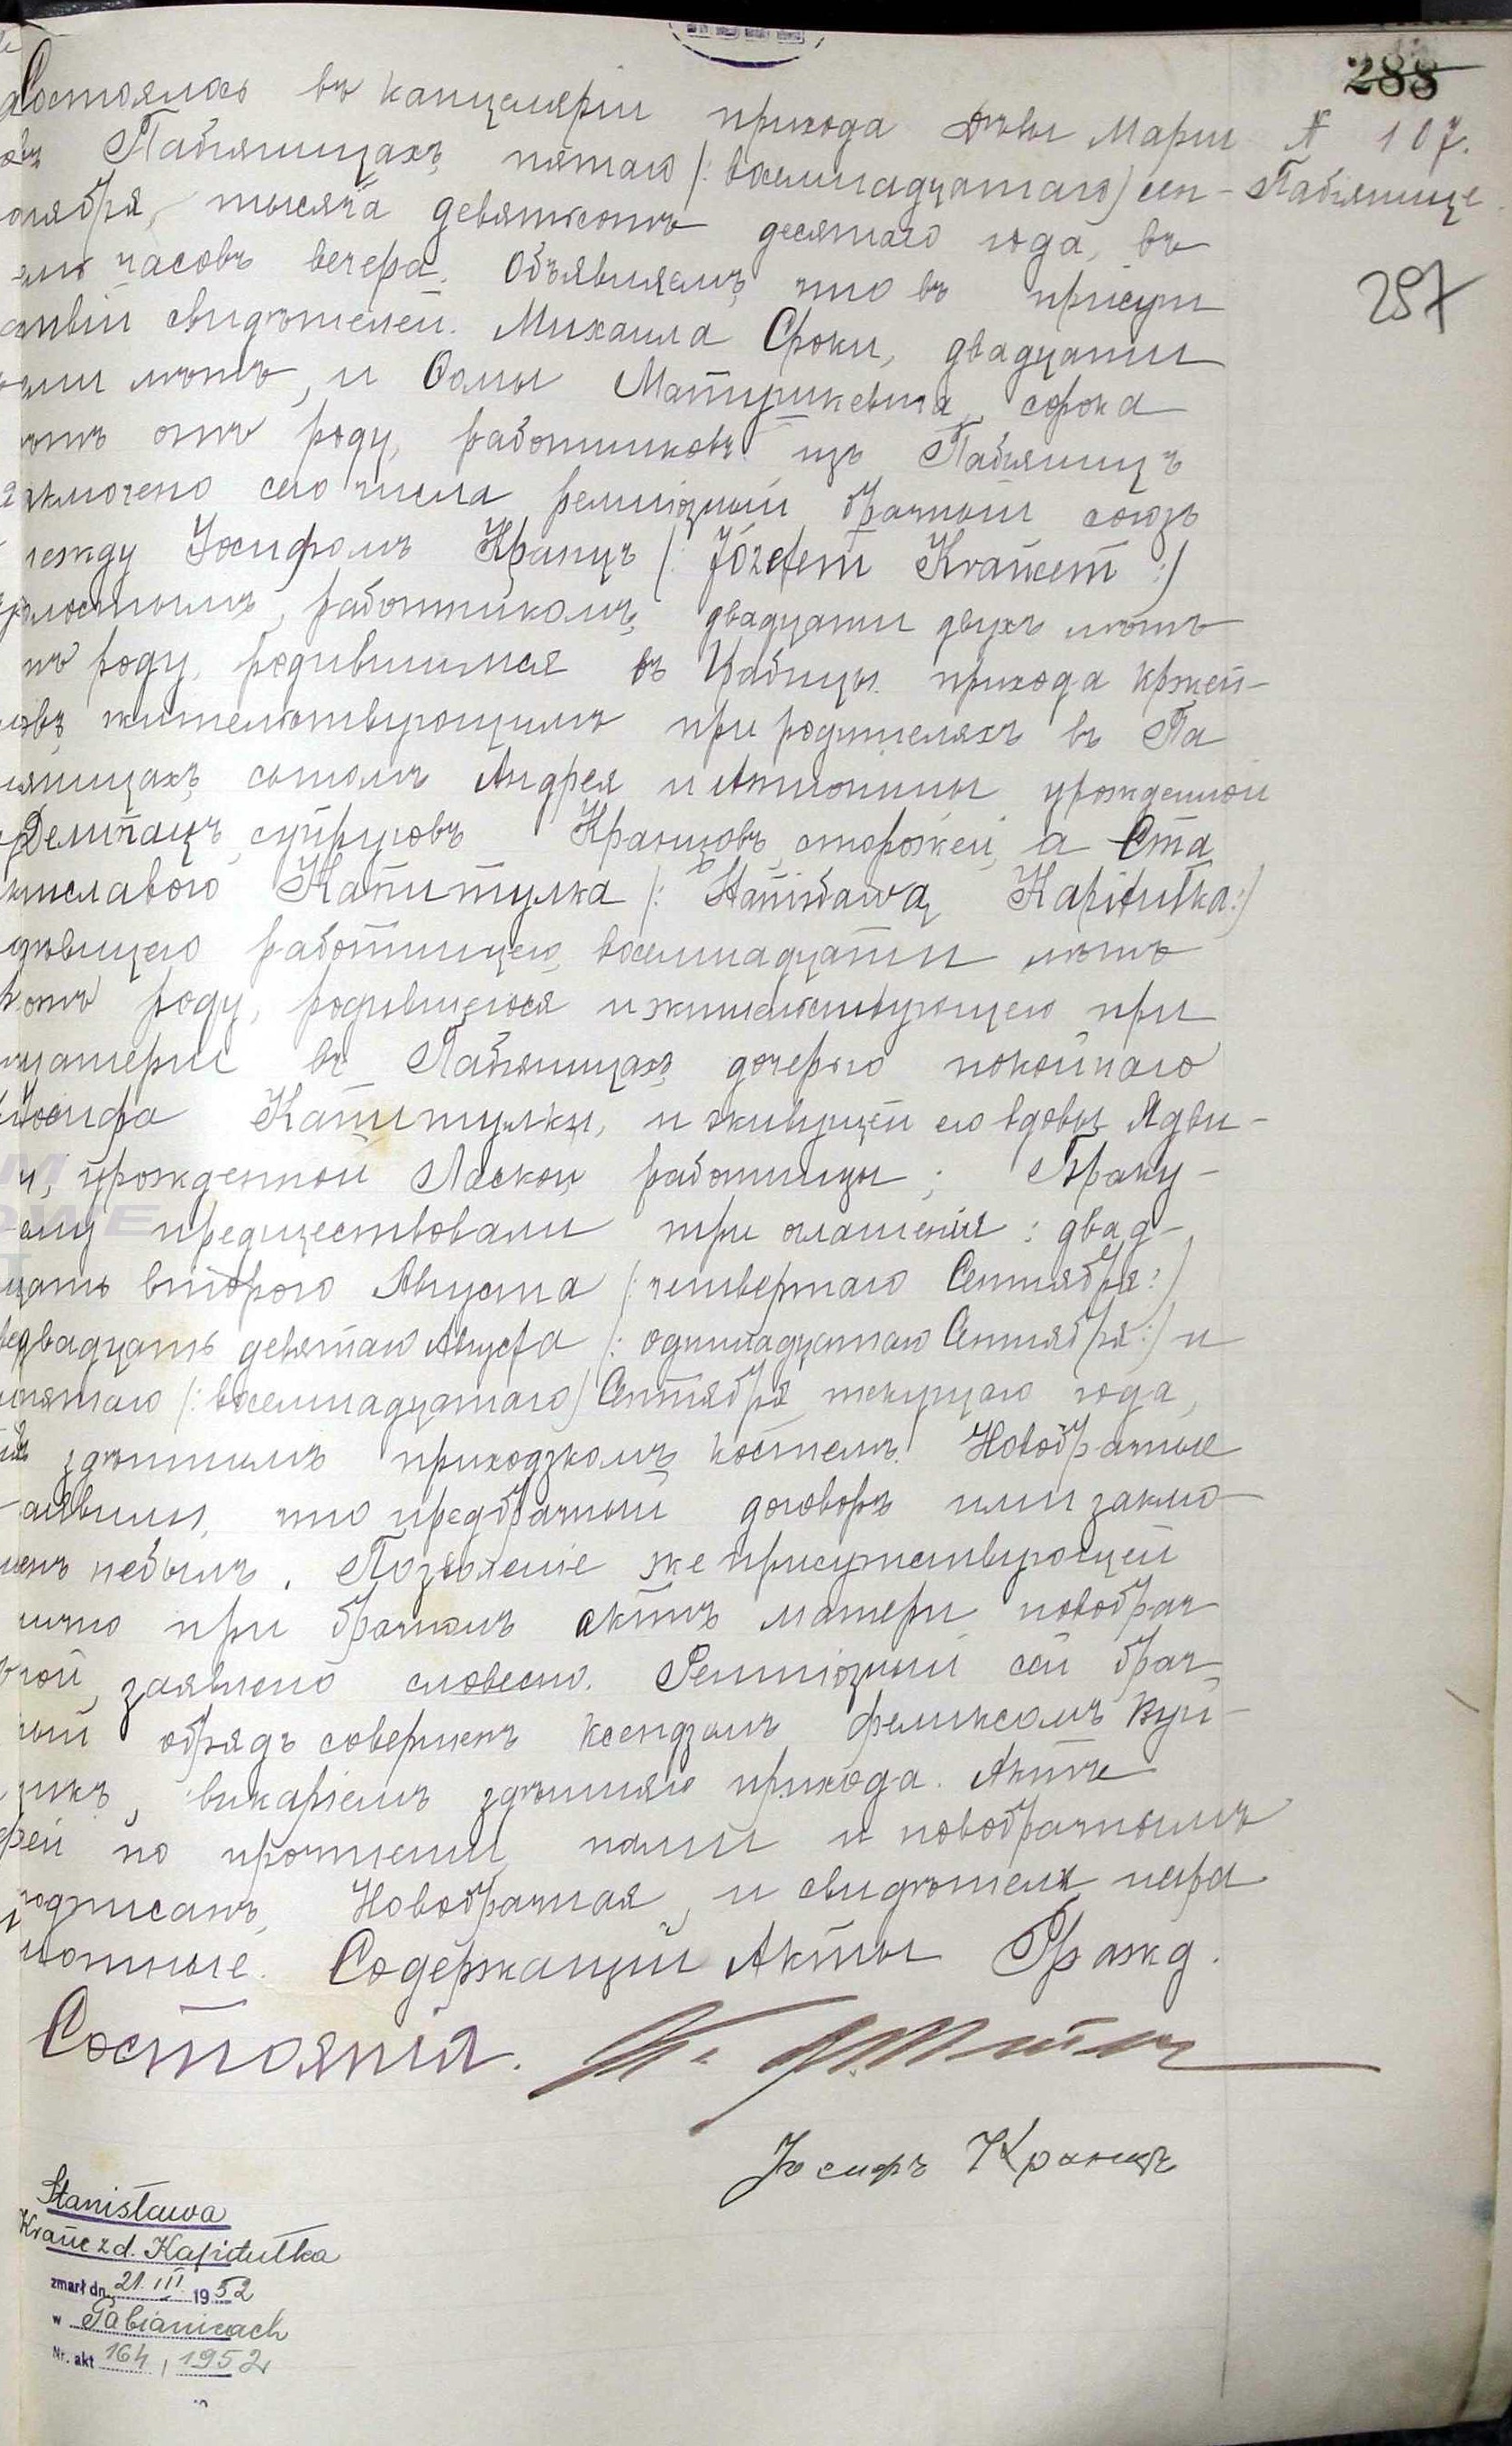 288
Состоялось въ канцеляріи прихода Дѣвы Маріи № 107.
въ Пабяницахъ, пятаго /: восемнадцатаго) сен- Пабянице.
тября, тысяча девятьсотъ десятаго года, въ
часовъ вечера. Объявляемъ, что въ присут 287
ствіи свидѣтелей. Михаила Сроки, двадцати
лѣтъ, и Ѳомы Матушкевича, сорока
лѣтъ отъ роду, работниковъ изъ Пабяницъ
заключено сего числа религіозный брачный союзъ
между Іосифомъ Кранцъ /: Józefem Krańcem :/
холостымъ, работникомъ, двадцати двухъ лѣтъ
отъ роду, родившимся въ прихода
жительствующимъ при родителяхъ въ Па
бяницахъ, сыномъ Андрея и Антонины урожденной
супруговъ Кранцовъ, сторожей, а Ста
ниславою Капитулка /: Stanisławą Kapitułka :/
дѣвицею работницею, восемнадцати лѣтъ
отъ роду, родившеюся и жительствующею при
матери въ Пабяницахъ, дочерью покойнаго
Іосифа Капитулки, и живущей его вдовы Ядви-
ги, урожденной работницы; Браку-
сему предшествовали три оглашенія: двад-
цать второго Августа /: четвертаго Сентября :/
двадцать девятаго Августа /: одиннадцатаго Сентября :/ и
пятаго /: восемнадцатаго) Сентября текущаго года,
въ здѣшнемъ приходзкомъ костелѣ. Новобрачные
заявили, что предбрачный договоръ ими заклю-
ченъ небылъ. Позволеніе же присутствующей
лично при брачномъ актѣ матери новобрач
ной, заявлено словесно. Религіозный сей брач
ный обрядъ совершенъ ксендзомъ Феликсомъ
викаріемъ здѣшняго прихода. Актъ
сей по прочтеніи нами и новобрачнымъ
подписанъ, Новобрачная и свидѣтели негра
мотные. Содержащій Акты Гражд.
Состоянія.
Іосифъ Кранцъ
Stanisława
Kranc z d. Kapitułka
zmarł dn. 21. III. 1952
w Pabianicach
Nr. akt 164 / 1952